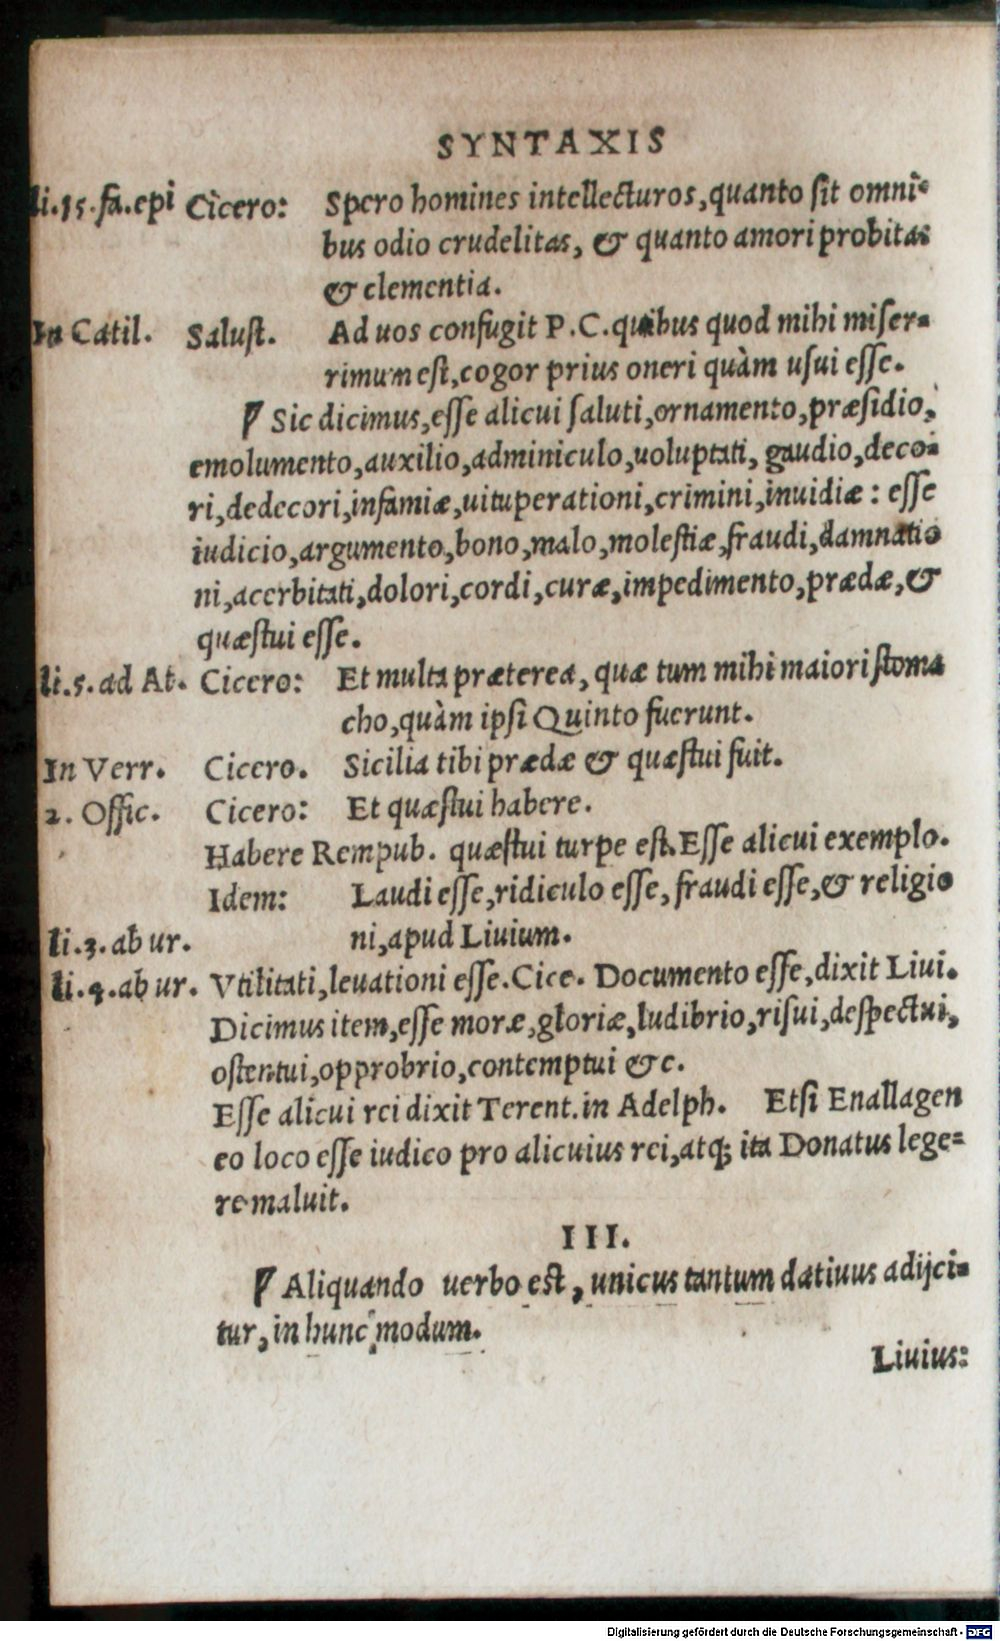 SYNTAXIS
li.15.fa.epi Cicero: Spero homines intellecturos,quanto sit omni-
bus odio crudelitas, & quanto amori probitas
& clementia.
In Catil. Salust. Ad uos confugit P.C.quibus quod mihi miser-
rimum est,cogor prius oneri quàm usui esse.
¶ Sic dicimus,esse alicui saluti,ornamento,præsidio,
emolumento,auxilio,adminiculo,uoluptati, gaudio,deco-
ri,dedecori,infamiæ,uituperationi,crimini,inuidiæ: esse
iudicio,argumento,bono,malo,molestiæ,fraudi,damnatio
ni,acerbitati,dolori,cordi,curæ,impedimento,prædæ,&
quæstui esse.
li.5.ad At. Cicero: Et multa præterea, quæ tum mihi maiori stoma
cho,quàm ipsi Quinto fuerunt.
In Verr. Cicero. Sicilia tibi prædæ & quæstui fuit.
2. Offic. Cicero: Et quæstui habere.
Habere Rempub. quæstui turpe est. Esse alicui exemplo.
Idem: Laudi esse,ridiculo esse, fraudi esse,& religio
li.3.ab ur. ni,apud Liuium.
li.4.ab ur. Vtilitati,leuationi esse.Cice. Documento esse,dixit Liui.
Dicimus item,esse moræ,gloriæ,ludibrio,risui,despectui,
ostentui,opprobrio,contemptui &c.
Esse alicui rei dixit Terent.in Adelph. Etsi Enallagen
eo loco esse iudico pro alicuius rei,atq; ita Donatus lege-
re maluit.
III.
¶ Aliquando uerbo est, unicus tantum datiuus adijci-
tur, in hunc modum.
Liuius:
Digitalisierung gefördert durch die Deutsche Forschungsgemeinschaft - DFG